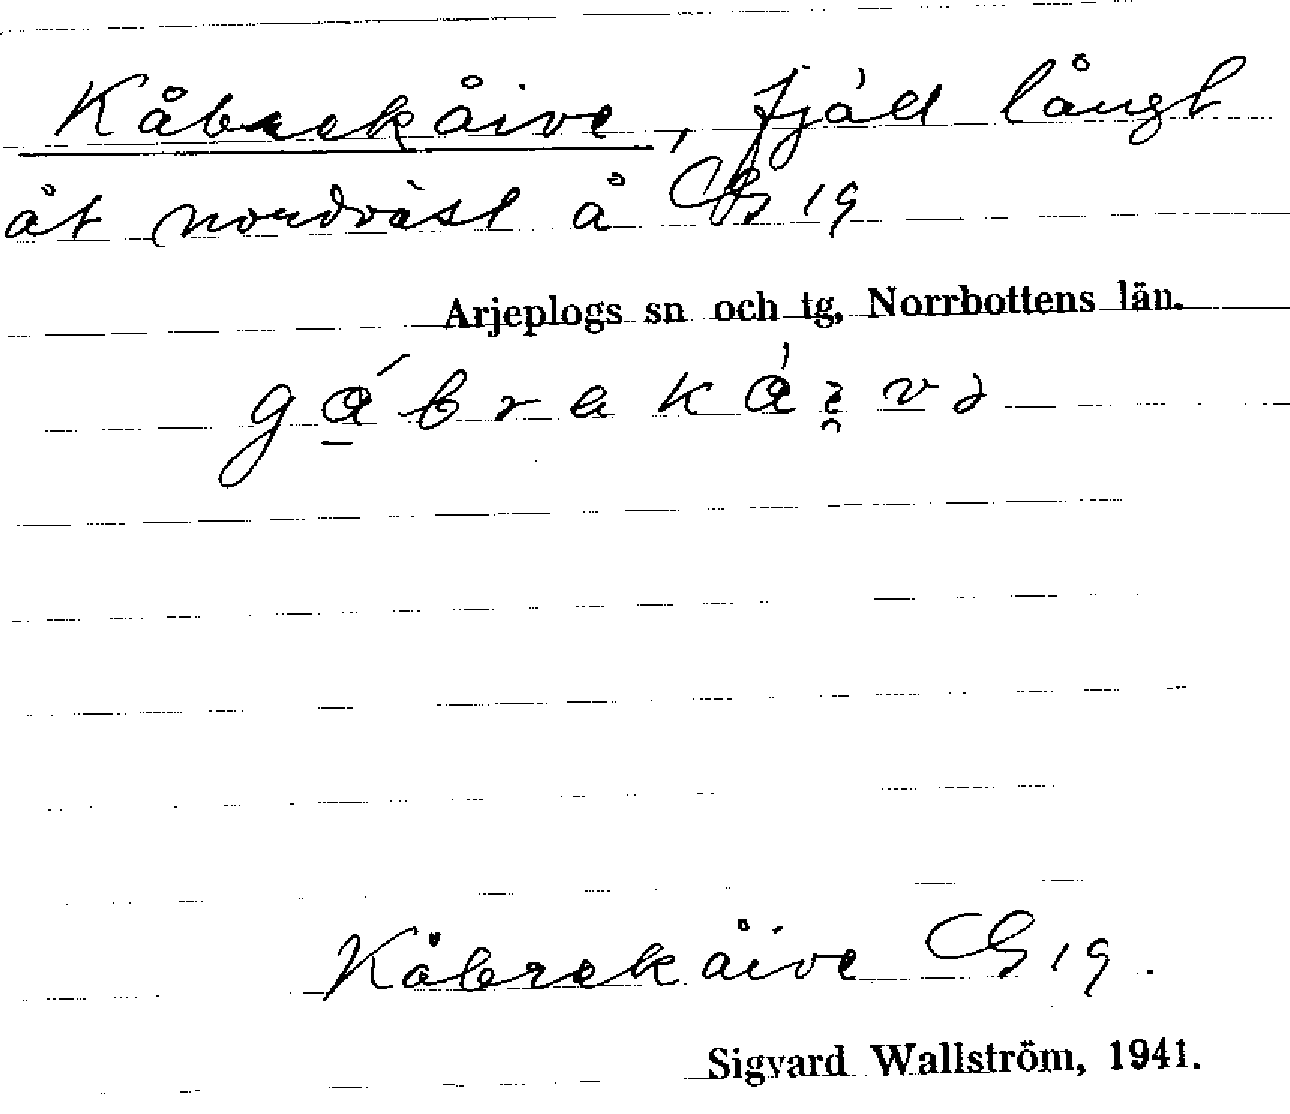 Kåbrekåive, fjäll långt
åt nordväst å G 19
Arjeplogs sn och tg, Norrbottens län.
gɑ́brakɑ́i̯və
Kåbrekåive G 19.
Sigvard Wallström, 1941.